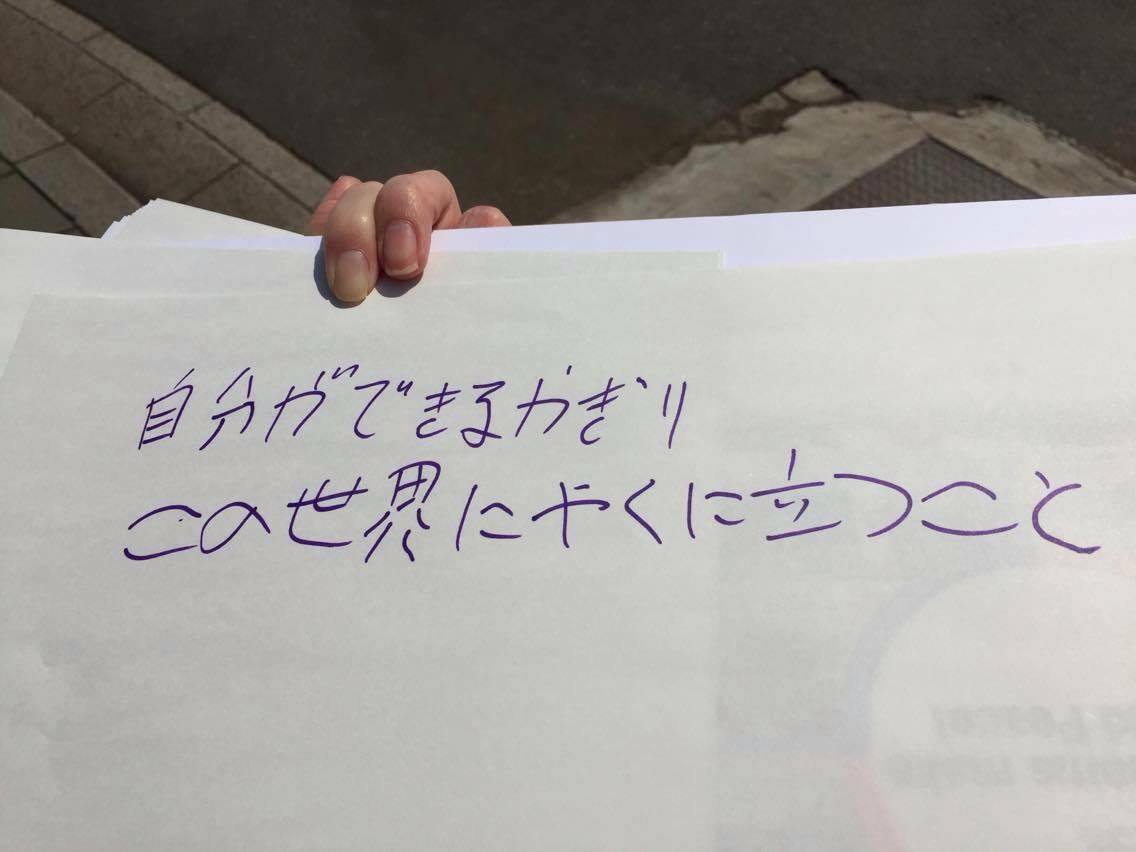 自分ができるかぎり
この世界にやくに立つこと